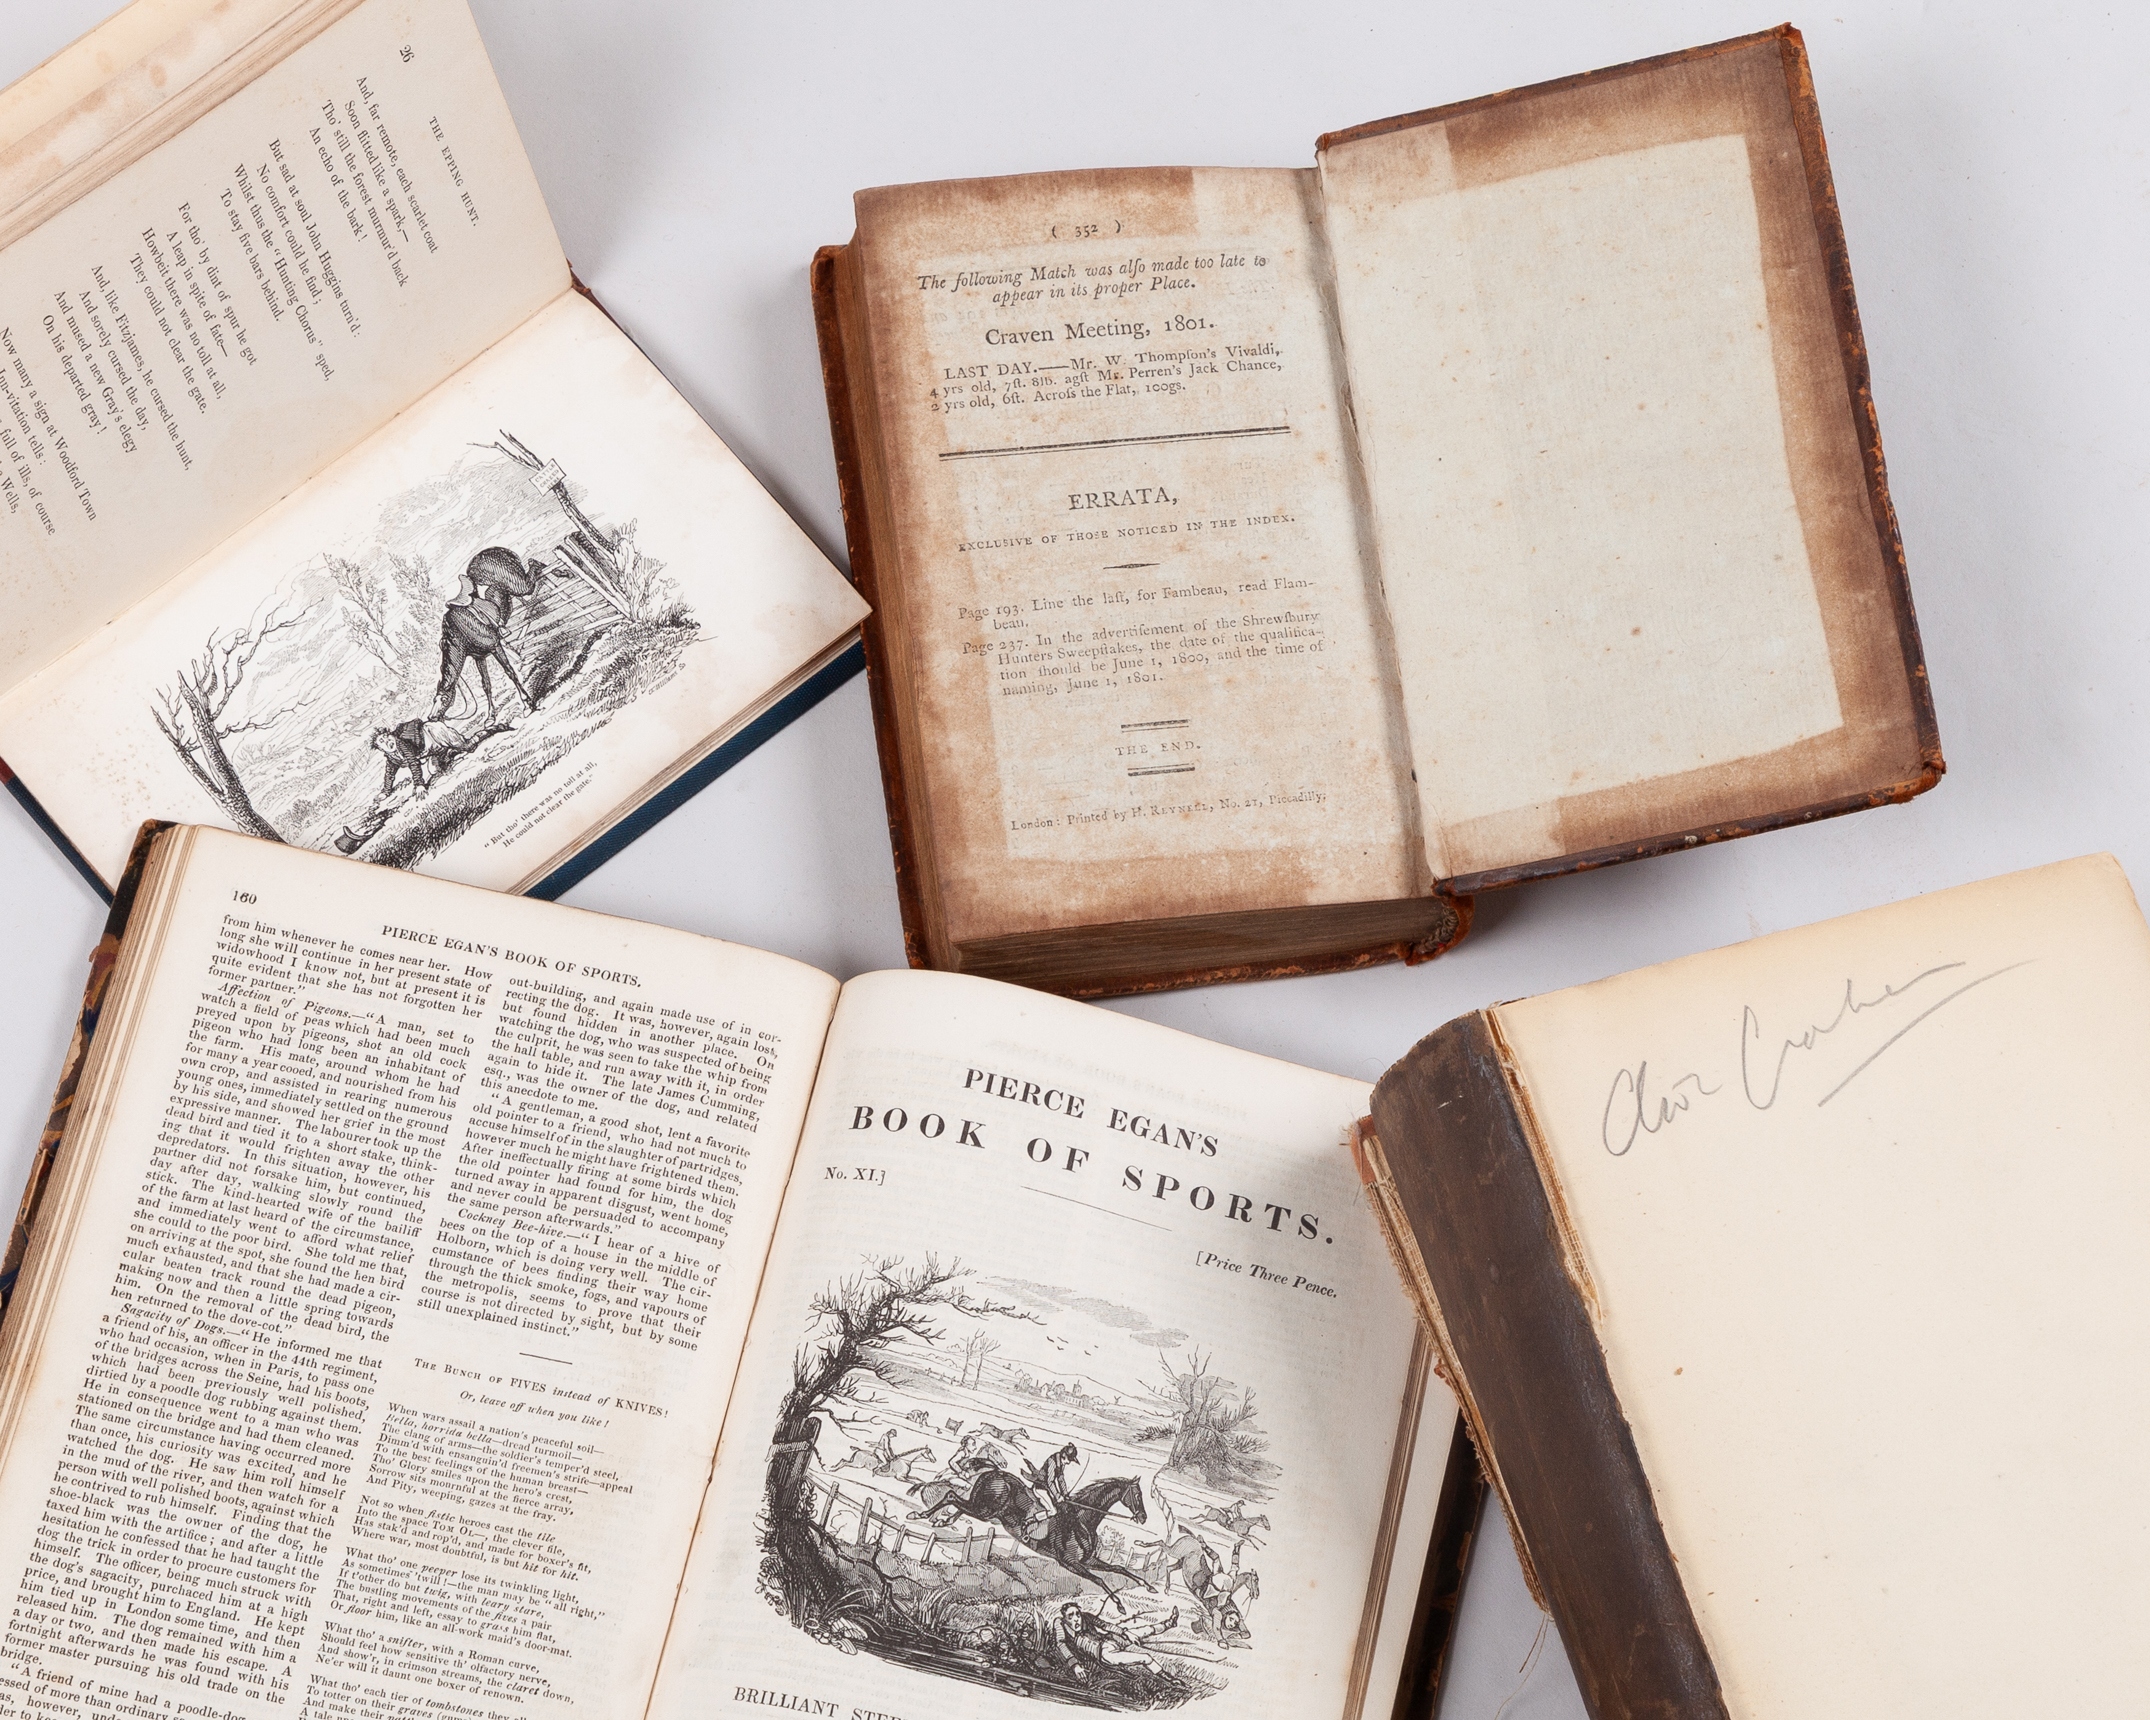 26
THE EPPING HUNT.
And, far remote, each scarlet coat
Soon flitted like a spark,—
Tho' still the forest murmur'd back
An echo of the bark!
But sad at soul John Huggins turn'd:
No comfort could he find;
Whilst thus the "Hunting Chorus" sped,
To stay five bars behind.
For tho' by dint of spur he got
A leap in spite of fate—
Howbeit there was no toll at all,
They could not clear the gate.
And, like Fitzjames, he cursed the hunt,
And sorely cursed the day,
And mused a new Gray's elegy
On his departed gray!
Now many a sign at Woodford Town
Inn-vitation tells:
full of ills, of course
Wells,
"But tho' there was no toll at all,
He could not clear the gate."
( 352 )
The following Match was alſo made too late to
appear in its proper Place.
Craven Meeting, 1801.
LAST DAY.——Mr. W. Thompſon's Vivaldi,
4 yrs old, 7ſt. 8lb. agſt Mr. Perren's Jack Chance,
2 yrs old, 6ſt. Acroſs the Flat, 100gs.
ERRATA,
EXCLUSIVE OF THOSE NOTICED IN THE INDEX.
Page 193. Line the laſt, for Fambeau, read Flam-
beau.
Page 237. In the advertiſement of the Shrewſbury
Hunters Sweepſtakes, the date of the qualifica-
tion ſhould be June 1, 1800, and the time of
naming, June 1, 1801.
THE END.
London: Printed by H. REYNELL, No. 21, Piccadilly.
160
PIERCE EGAN'S BOOK OF SPORTS.
from him whenever he comes near her. How
long she will continue in her present state of
widowhood I know not, but at present it is
quite evident that she has not forgotten her
former partner."
Affection of Pigeons.—"A man, set to
watch a field of peas which had been much
preyed upon by pigeons, shot an old cock
pigeon who had long been an inhabitant of
the farm. His mate, around whom he had
for many a year cooed, and nourished from his
own crop, and assisted in rearing numerous
young ones, immediately settled on the ground
by his side, and showed her grief in the most
expressive manner. The labourer took up the
dead bird and tied it to a short stake, think-
ing that it would frighten away the other
depredators. In this situation, however, his
partner did not forsake him, but continued,
day after day, walking slowly round the
stick. The kind-hearted wife of the bailiff
of the farm at last heard of the circumstance,
and immediately went to afford what relief
she could to the poor bird. She told me that,
on arriving at the spot, she found the hen bird
much exhausted, and that she had made a cir-
cular beaten track round the dead pigeon,
making now and then a little spring towards
him. On the removal of the dead bird, the
hen returned to the dove-cot."
Sagacity of Dogs.—"He informed me that
a friend of his, an officer in the 44th regiment,
who had occasion, when in Paris, to pass one
of the bridges across the Seine, had his boots,
which had been previously well polished,
dirtied by a poodle dog rubbing against them.
He in consequence went to a man who was
stationed on the bridge and had them cleaned.
The same circumstance having occurred more
than once, his curiosity was excited, and he
watched the dog. He saw him roll himself
in the mud of the river, and then watch for a
person with well polished boots, against which
he contrived to rub himself. Finding that the
shoe-black was the owner of the dog, he
taxed him with the artifice; and after a little
hesitation he confessed that he had taught the
dog the trick in order to procure customers for
himself. The officer, being much struck with
the dog's sagacity, purchased him at a high
price, and brought him to England. He kept
him tied up in London some time, and then
released him. The dog remained with him a
a day or two, and then made his escape. A
fortnight afterwards he was found with his
former master pursuing his old trade on the
bridge.
"A friend of mine had a poodle-dog
essed of more than ordinary
as, however, under
out-building, and again made use of in cor-
recting the dog. It was, however, again lost,
but found hidden in another place. On
watching the dog, who was suspected of being
the culprit, he was seen to take the whip from
the hall table, and run away with it, in order
again to hide it. The late James Cumming,
esq., was the owner of the dog, and related
this anecdote to me.
"A gentleman, a good shot, lent a favorite
old pointer to a friend, who had not much to
accuse himself of in the slaughter of partridges,
however much he might have frightened them.
After ineffectually firing at some birds which
the old pointer had found for him, the dog
turned away in apparent disgust, went home,
and never could be persuaded to accompany
the same person afterwards."
Cockney Bee-hive.—"I hear of a hive of
bees on the top of a house in the middle of
Holborn, which is doing very well. The cir-
cumstance of bees finding their way home
through the thick smoke, fogs, and vapours of
the metropolis, seems to prove that their
course is not directed by sight, but by some
still unexplained instinct."
THE BUNCH OF FIVES instead of KNIVES!
Or, leave off when you like!
When wars assail a nation's peaceful soil—
Bella, horrida bella—dread turmoil—
The clang of arms—the soldier's temper'd steel,
Dimm'd with ensanguin'd freemen's strife—appeal
To the best feelings of the human breast—
Tho' Glory smiles upon the hero's crest,
Sorrow sits mournful at the fierce array,
And Pity, weeping, gazes at the fray.
Not so when fistic heroes cast the tile
Into the space TOM OL—, the clever file,
Has stak'd and rop'd, and made for boxer's fit,
Where war, most doubtful, is but hit for hit.
What tho' one peeper lose its twinkling light,
As sometimes 'twill!—the man may be "all right,"
If t'other do but twig, with leary stare,
The bustling movements of the fives a pair
That, right and left, essay to grass him flat,
Or floor him, like an all-work maid's door-mat.
What tho' a snifter, with a Roman curve,
Should feel how sensitive th' olfactory nerve,
And show'r, in crimson streams, the claret down,
Ne'er will it daunt one boxer of renown.
What tho' each tier of tombstones they
To totter on their graves
And make their
A tale
PIERCE EGAN'S
BOOK OF SPORTS.
No. XI.]
[Price Three Pence.
BRILLIANT